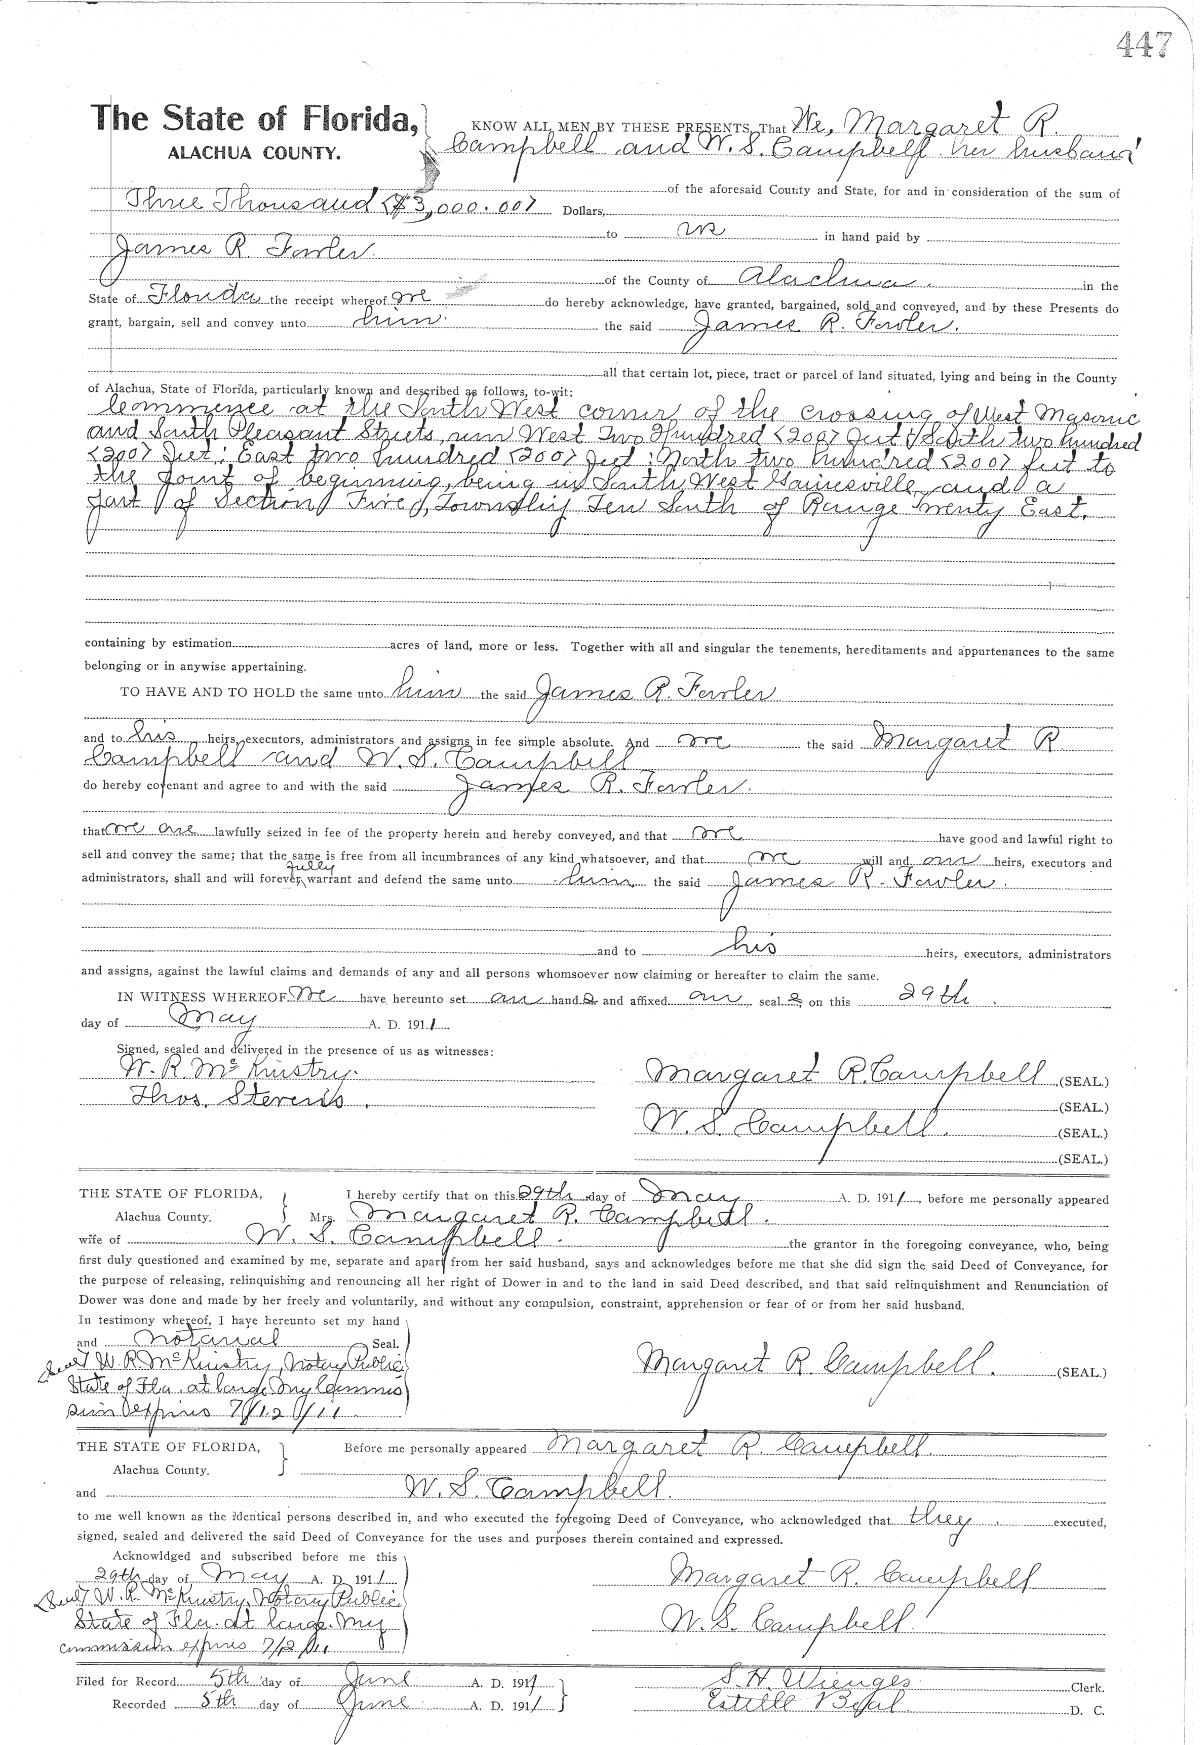 447
The State of Florida,
ALACHUA COUNTY.
KNOW ALL MEN BY THESE PRESENTS, That We, Margaret R.
Campbell and W. S. Campbell her husband
of the aforesaid County and State, for and in consideration of the sum of
Three Thousand <$3,000.00> Dollars,
to us in hand paid by
James R. Fowler
of the County of Alachua. in the
State of Florida the receipt whereof we do hereby acknowledge, have granted, bargained, sold and conveyed, and by these Presents do
grant, bargain, sell and convey unto him the said James R. Fowler.
all that certain lot, piece, tract or parcel of land situated, lying and being in the County
of Alachua, State of Florida, particularly known and described as follows, to-wit:
Commence at the South West corner of the crossing of West Masonic
and South Pleasant Streets, run West Two Hundred <200> feet; South two hundred
<200> feet; East two hundred <200> feet; North two hundred <200> feet to
the point of beginning, being in South West Gainesville, and a
part of Section Five, Township Ten South of Range Twenty East.
containing by estimation acres of land, more or less. Together with all and singular the tenements, hereditaments and appurtenances to the same
belonging or in anywise appertaining.
TO HAVE AND TO HOLD the same unto him the said James R. Fowler
and to his heirs, executors, administrators and assigns in fee simple absolute. And we the said Margaret R
Campbell and W. S. Campbell
do hereby covenant and agree to and with the said James R. Fowler.
that we are lawfully seized in fee of the property herein and hereby conveyed, and that we have good and lawful right to
sell and convey the same; that the same is free from all incumbrances of any kind whatsoever, and that we will and our heirs, executors and
fully
administrators, shall and will forever, warrant and defend the same unto him the said James R. Fowler.
and to his heirs, executors, administrators
and assigns, against the lawful claims and demands of any and all persons whomsoever now claiming or hereafter to claim the same.
IN WITNESS WHEREOF We have hereunto set our hands and affixed our seals on this 29th.
day of May A. D. 1911
Signed, sealed and delivered in the presence of us as witnesses:
W. R. McKinstry.
Thos. Stevens.
Margaret R. Campbell (SEAL.)
(SEAL.)
W. S. Campbell. (SEAL.)
(SEAL.)
THE STATE OF FLORIDA,
Alachua County.
I hereby certify that on this 29th day of May A. D. 1911, before me personally appeared
Mrs. Margaret R. Campbell.
wife of W. S. Campbell. the grantor in the foregoing conveyance, who, being
first duly questioned and examined by me, separate and apart from her said husband, says and acknowledges before me that she did sign the said Deed of Conveyance, for
the purpose of releasing, relinquishing and renouncing all her right of Dower in and to the land in said Deed described, and that said relinquishment and Renunciation of
Dower was done and made by her freely and voluntarily, and without any compulsion, constraint, apprehension or fear of or from her said husband.
In testimony whereof, I have hereunto set my hand
and notarial Seal.
<Seal> W. R. McKinstry, Notary Public
State of Fla. at large My Commis
sion expires 7/12/11.
Margaret R. Campbell. (SEAL.)
THE STATE OF FLORIDA,
Alachua County.
Before me personally appeared Margaret R. Campbell
and W. S. Campbell.
to me well known as the identical persons described in, and who executed the foregoing Deed of Conveyance, who acknowledged that they executed,
signed, sealed and delivered the said Deed of Conveyance for the uses and purposes therein contained and expressed.
Acknowldged and subscribed before me this
29th day of May A. D. 1911
<Seal> W. R. McKinstry, Notary Public
State of Fla. at large. My
commission expires 7/12/11
Margaret R. Campbell
W. S. Campbell.
Filed for Record 5th day of June A. D. 1911
Recorded 5th day of June A. D. 1911
S. H. Wienges Clerk.
Estelle D. C.